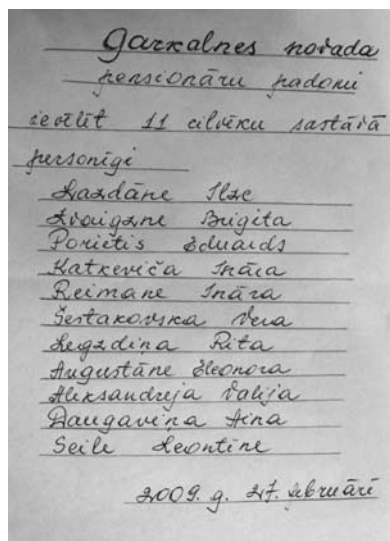 Garkalnes novada
pensionāru padomi
ievēlēt 11 cilvēku sastāvā
personīgi
Lazdāne Ilze
Zvaigzne Brigita
Porietis Eduards
Katkeviča Ināra
Reimane Ināra
Šestakovska Vera
Legzdiņa Rita
Augustāne Eleonora
Aleksandreja Valija
Daugaviņa Aina
Seile Leontīne
2009. g. 27. februārī